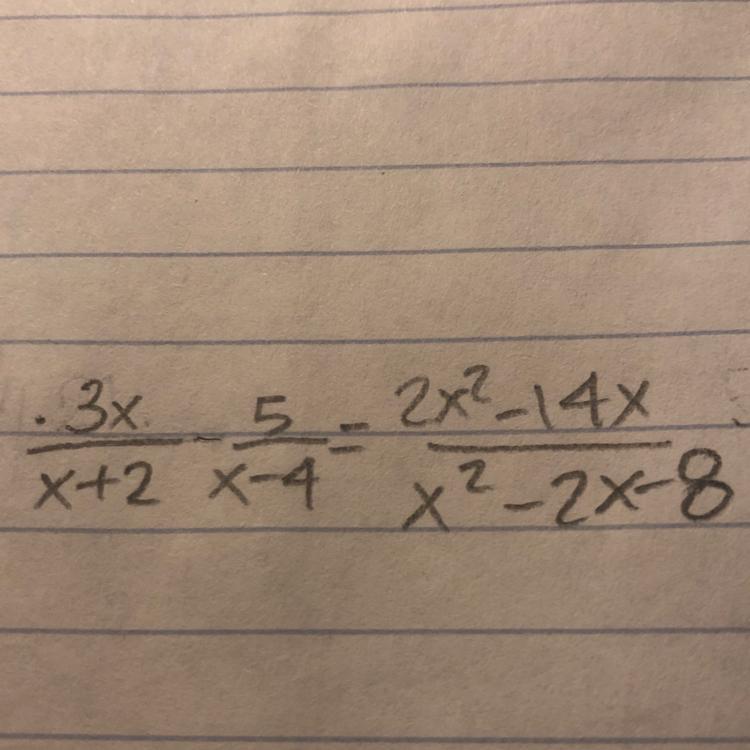 3x/x+2 - 5/x-4 = 2x²-14x/x²-2x-8